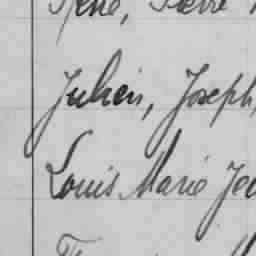 René, Pierre
Julien, Joseph,
Louis Marie Jea